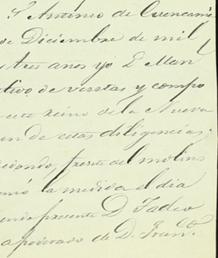 S. António de Corencam
de Diciembre de mil
tres años yo D. Man
tivo de visitas y compo
este reino de la Nueva
on de estas diligencias
ciendo frente del molino
la medida el dia
presente D. Tadeo
apoderado de D. Fran.co